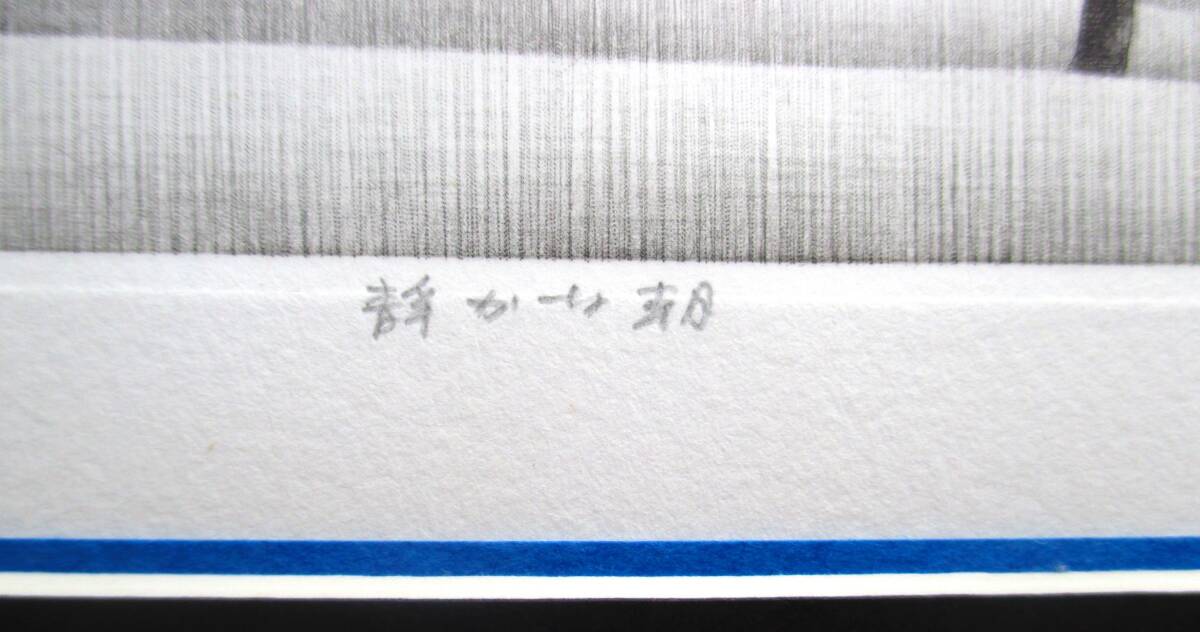 静かな朝